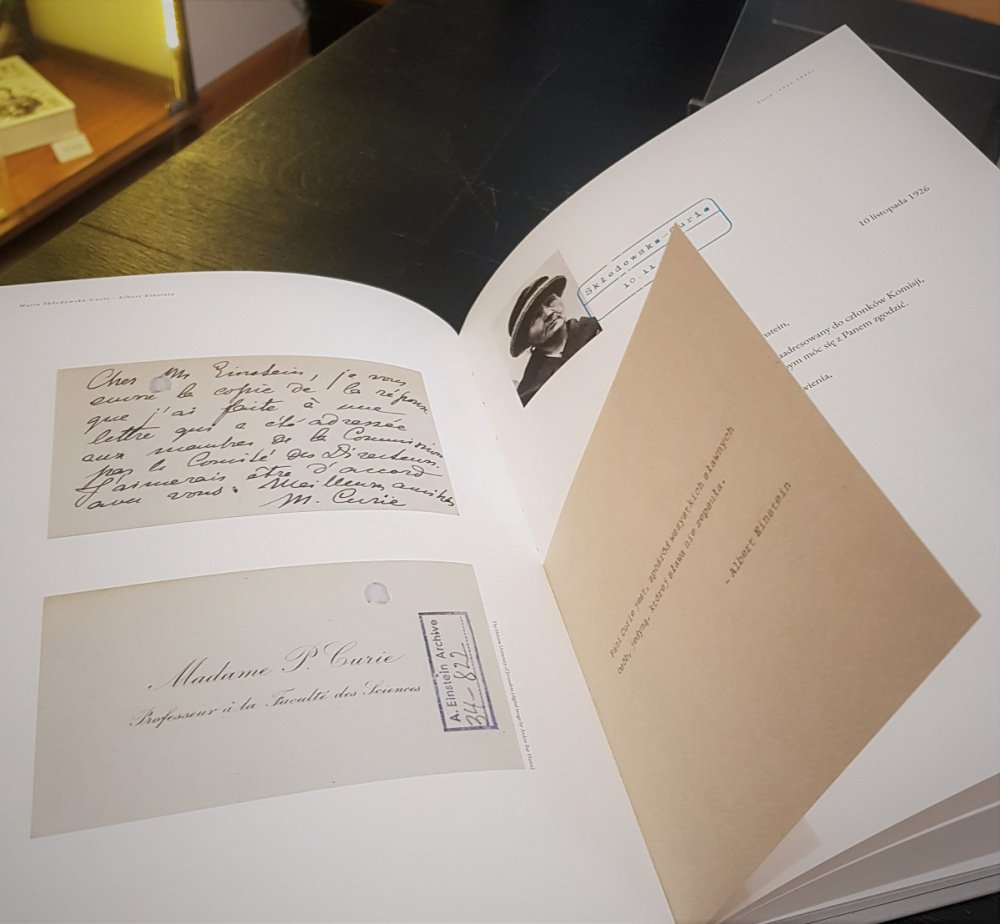 Marie Skłodowska-Curie Albert Einstein
Cher Mr Einstein, je vous
envoie la copie de la réponse
que j'ai faite à une
lettre qui a été adressée
aux membres de la Commission
par le Comité des Directeurs.
J'aimerais être d'accord
avec vous. Meilleures amitiés
M. Curie
Madame P. Curie
Professeur à la Faculté des Sciences
A. Einstein Archive
34-822
Skłodowska-Curie
10.11
10 listopada 1926
nstein,
aadresowany do członków Komisji,
ym móc się z Panem zgodzić.
wienia,
Pani Curie jest, spośród wszystkich sławnych
osób, jedyną, której sława nie zepsuła.
- Albert Einstein